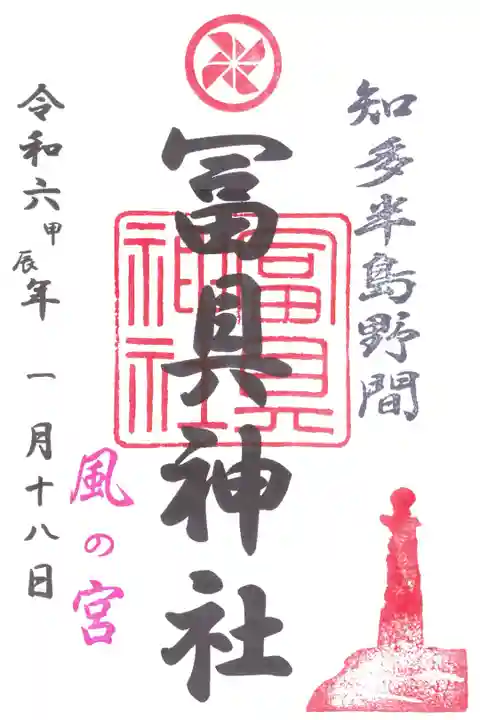 知多半島野間
冨具神社
冨具神社
風の宮
令和六甲辰年 一月十八日